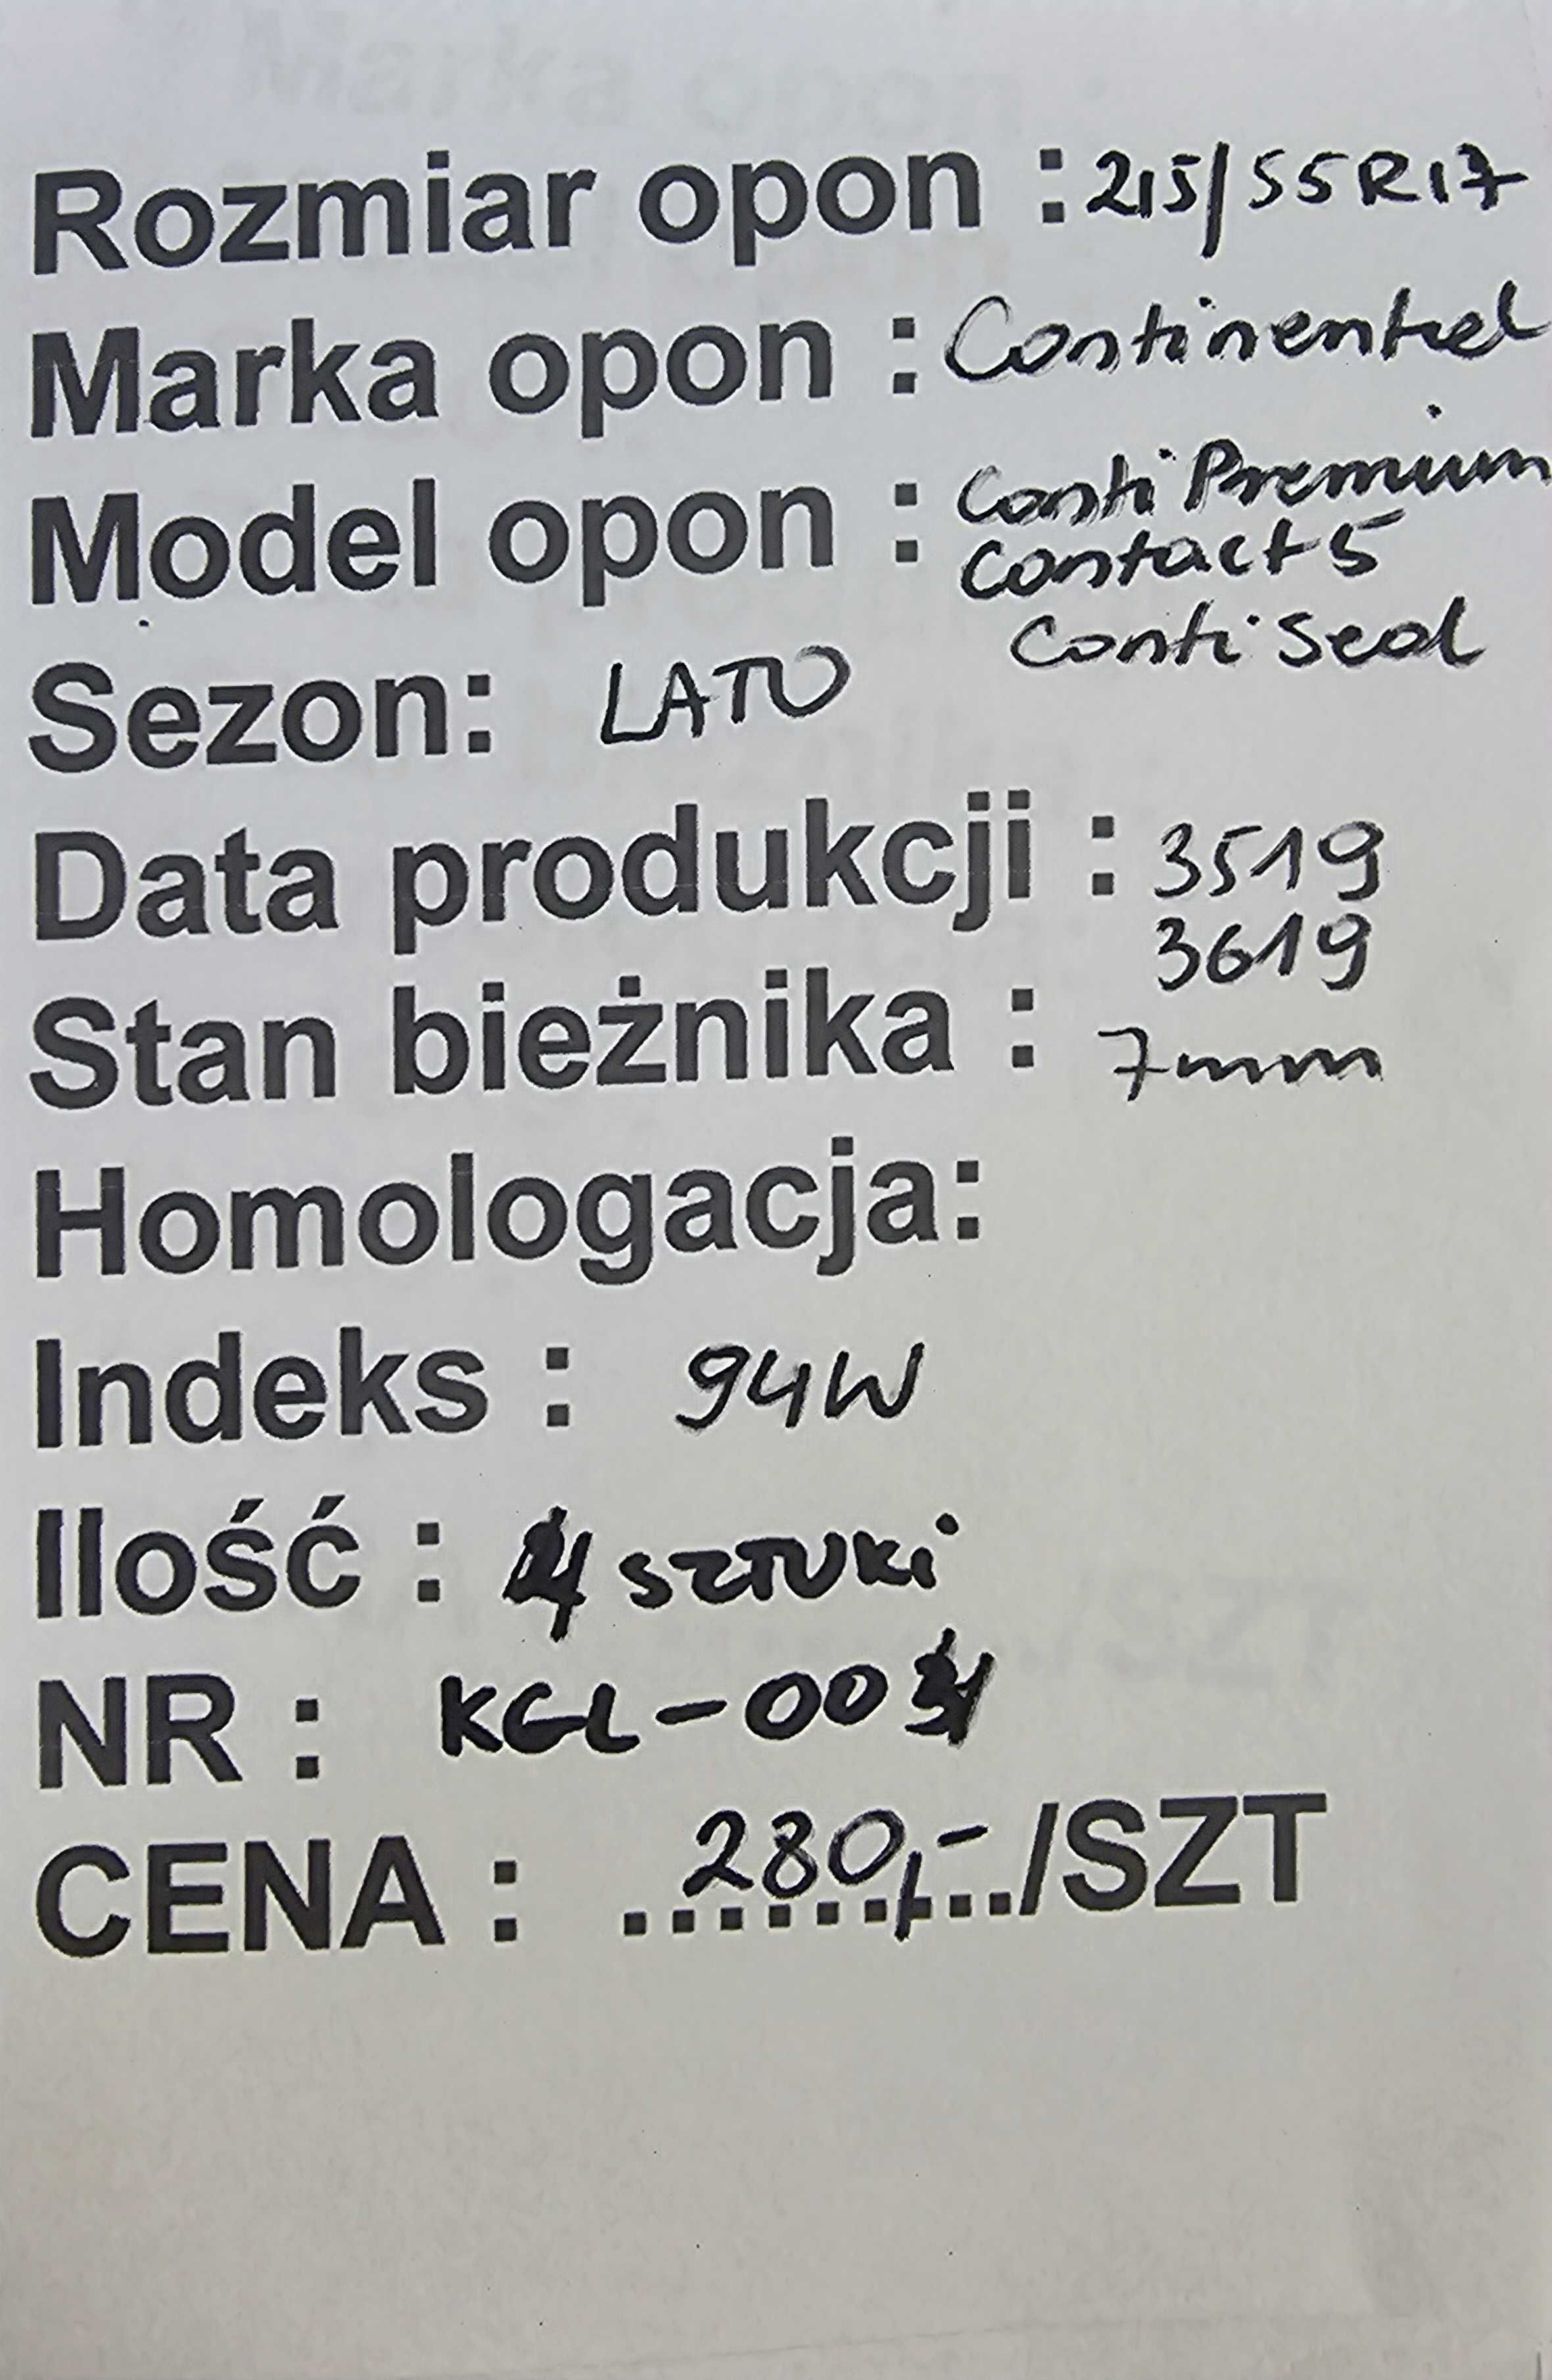 Rozmiar opon : 215/55R17
Marka opon : Continental
Model opon : Conti Premium
Contact 5
Conti Seal
Sezon: LATO
Data produkcji : 3519
3619
Stan bieżnika : 7mm
Homologacja:
Indeks : 94W
Ilość : 4 SZTUKI
NR : KGL-004
CENA : 280,-/SZT